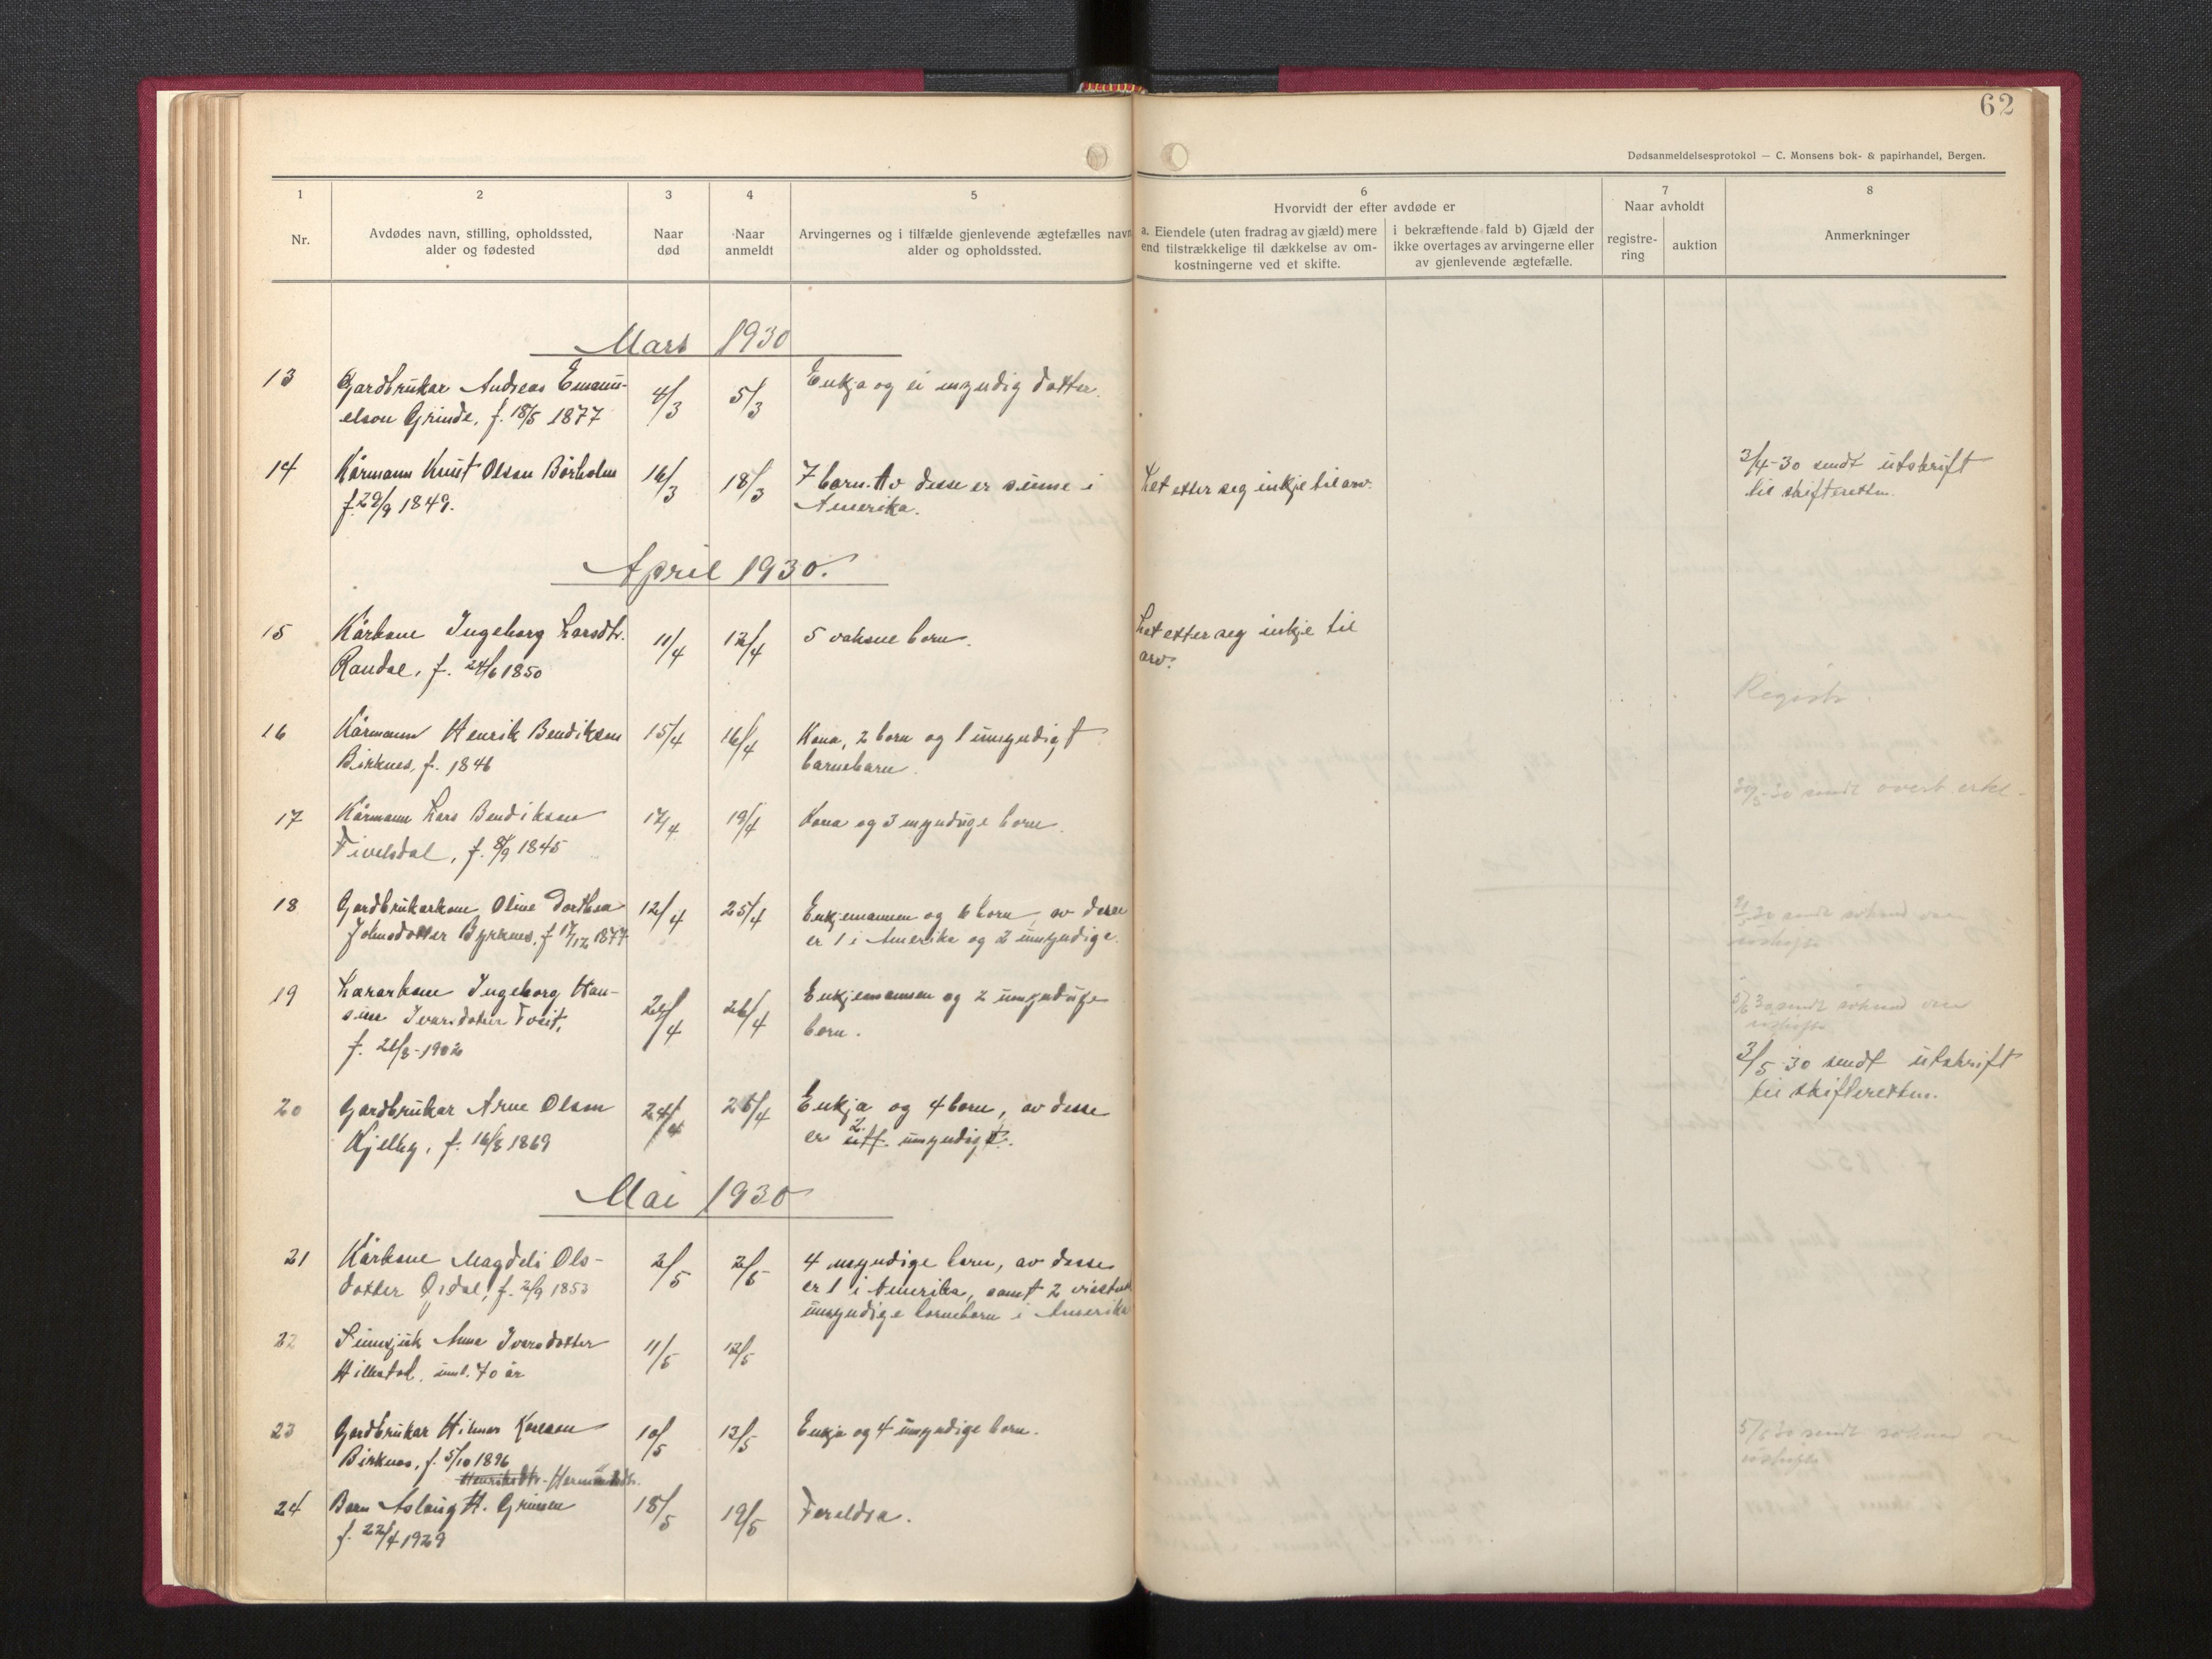 62
Dødsanmeldelsesprotokol — C. Monsens bok- & papirhandel, Bergen.
1 2 3 4 5 6 7 8
Nr.
Avdødes navn, stilling, opholdssted,
alder og fødested
Naar
død
Naar
anmeldt
Arvingernes og i tilfælde gjenlevende ægtefælles navn
alder og opholdssted.
Hvorvidt der efter avdøde er
a. Eiendele (uten fradrag av gjæld) mere
end tilstrækkelige til dækkelse av om-
kostningerne ved et skifte.
i bekræftende fald b) Gjæld der
ikke overtages av arvingerne eller
av gjenlevende ægtefælle.
Naar avholdt
registre-
ring
auktion
Anmerkninger
Mars 1930
13 Gardbrukar Andreas Emanu- 4/3 5/3 Enkja og ei myndig dotter.
elson Grinde, f. 18/5 1877
14 Kårmann Knut Olsen Börholm 16/3 18/3 7 born. Av desse er sume i Let etter seg inkje til arv. 3/4-30 sendt utskrift
f. 29/9 1849. Amerika. til skifteretten.
April 1930.
15 Kårkone Ingeborg Larsdtr. 11/4 12/4 5 vaksne born. Let etter seg inkje til
Randal, f. 24/6 1850 arv.
Registr.
16 Kårmann Henrik Bendiksen 15/4 16/4 Kona, 2 born og 1 umyndigt
Birknes, f. 1846 barnebarn.
17 Kårmann Lars Bendiksen 17/4 19/4 Kona og 3 myndige born.
Fivelsdal, f. 8/9 1845
18 Gardbrukarkone Oline Dorthea 12/4 25/4 Enkjemannen og 6 born, av desse
Johnsdotter Byrknes, f. 17/12 1877 er 1 i Amerika og 2 umyndige.
19 Lærarkone Ingeborg Han- 24/4 26/4 Enkjemannen og 2 umyndige
sine Ivarsdotter Tveit, born.
f. 21/8-1902
3/5-30 sendt utskrift
til skifteretten.
20 Gardbrukar Arne Olsen 24/4 26/4 Enkja og 4 born, av desse
Kjelby, f. 16/8 1869 er 2 umyndige.
Mai 1930
21 Kårkone Magdeli Ols- 2/5 2/5 4 myndige born, av desse
dotter Ødal, f. 2/9 1853 er 1 i Amerika, samt 2
umyndige barneborn i Amerika
22 Sinnsjuk Anna Ivarsdotter 11/5 12/5
Hillestad, uml. 70 år
23 Gardbrukar Hilmar Karlson 10/5 12/5 Enkja og 4 umyndige born.
Birknes, f. 5/10 1896
Henriksdtr. Hermundsdtr.
24 Barn Aslaug H. Grinde 18/5 19/5 Foreldra.
f. 22/4 1929